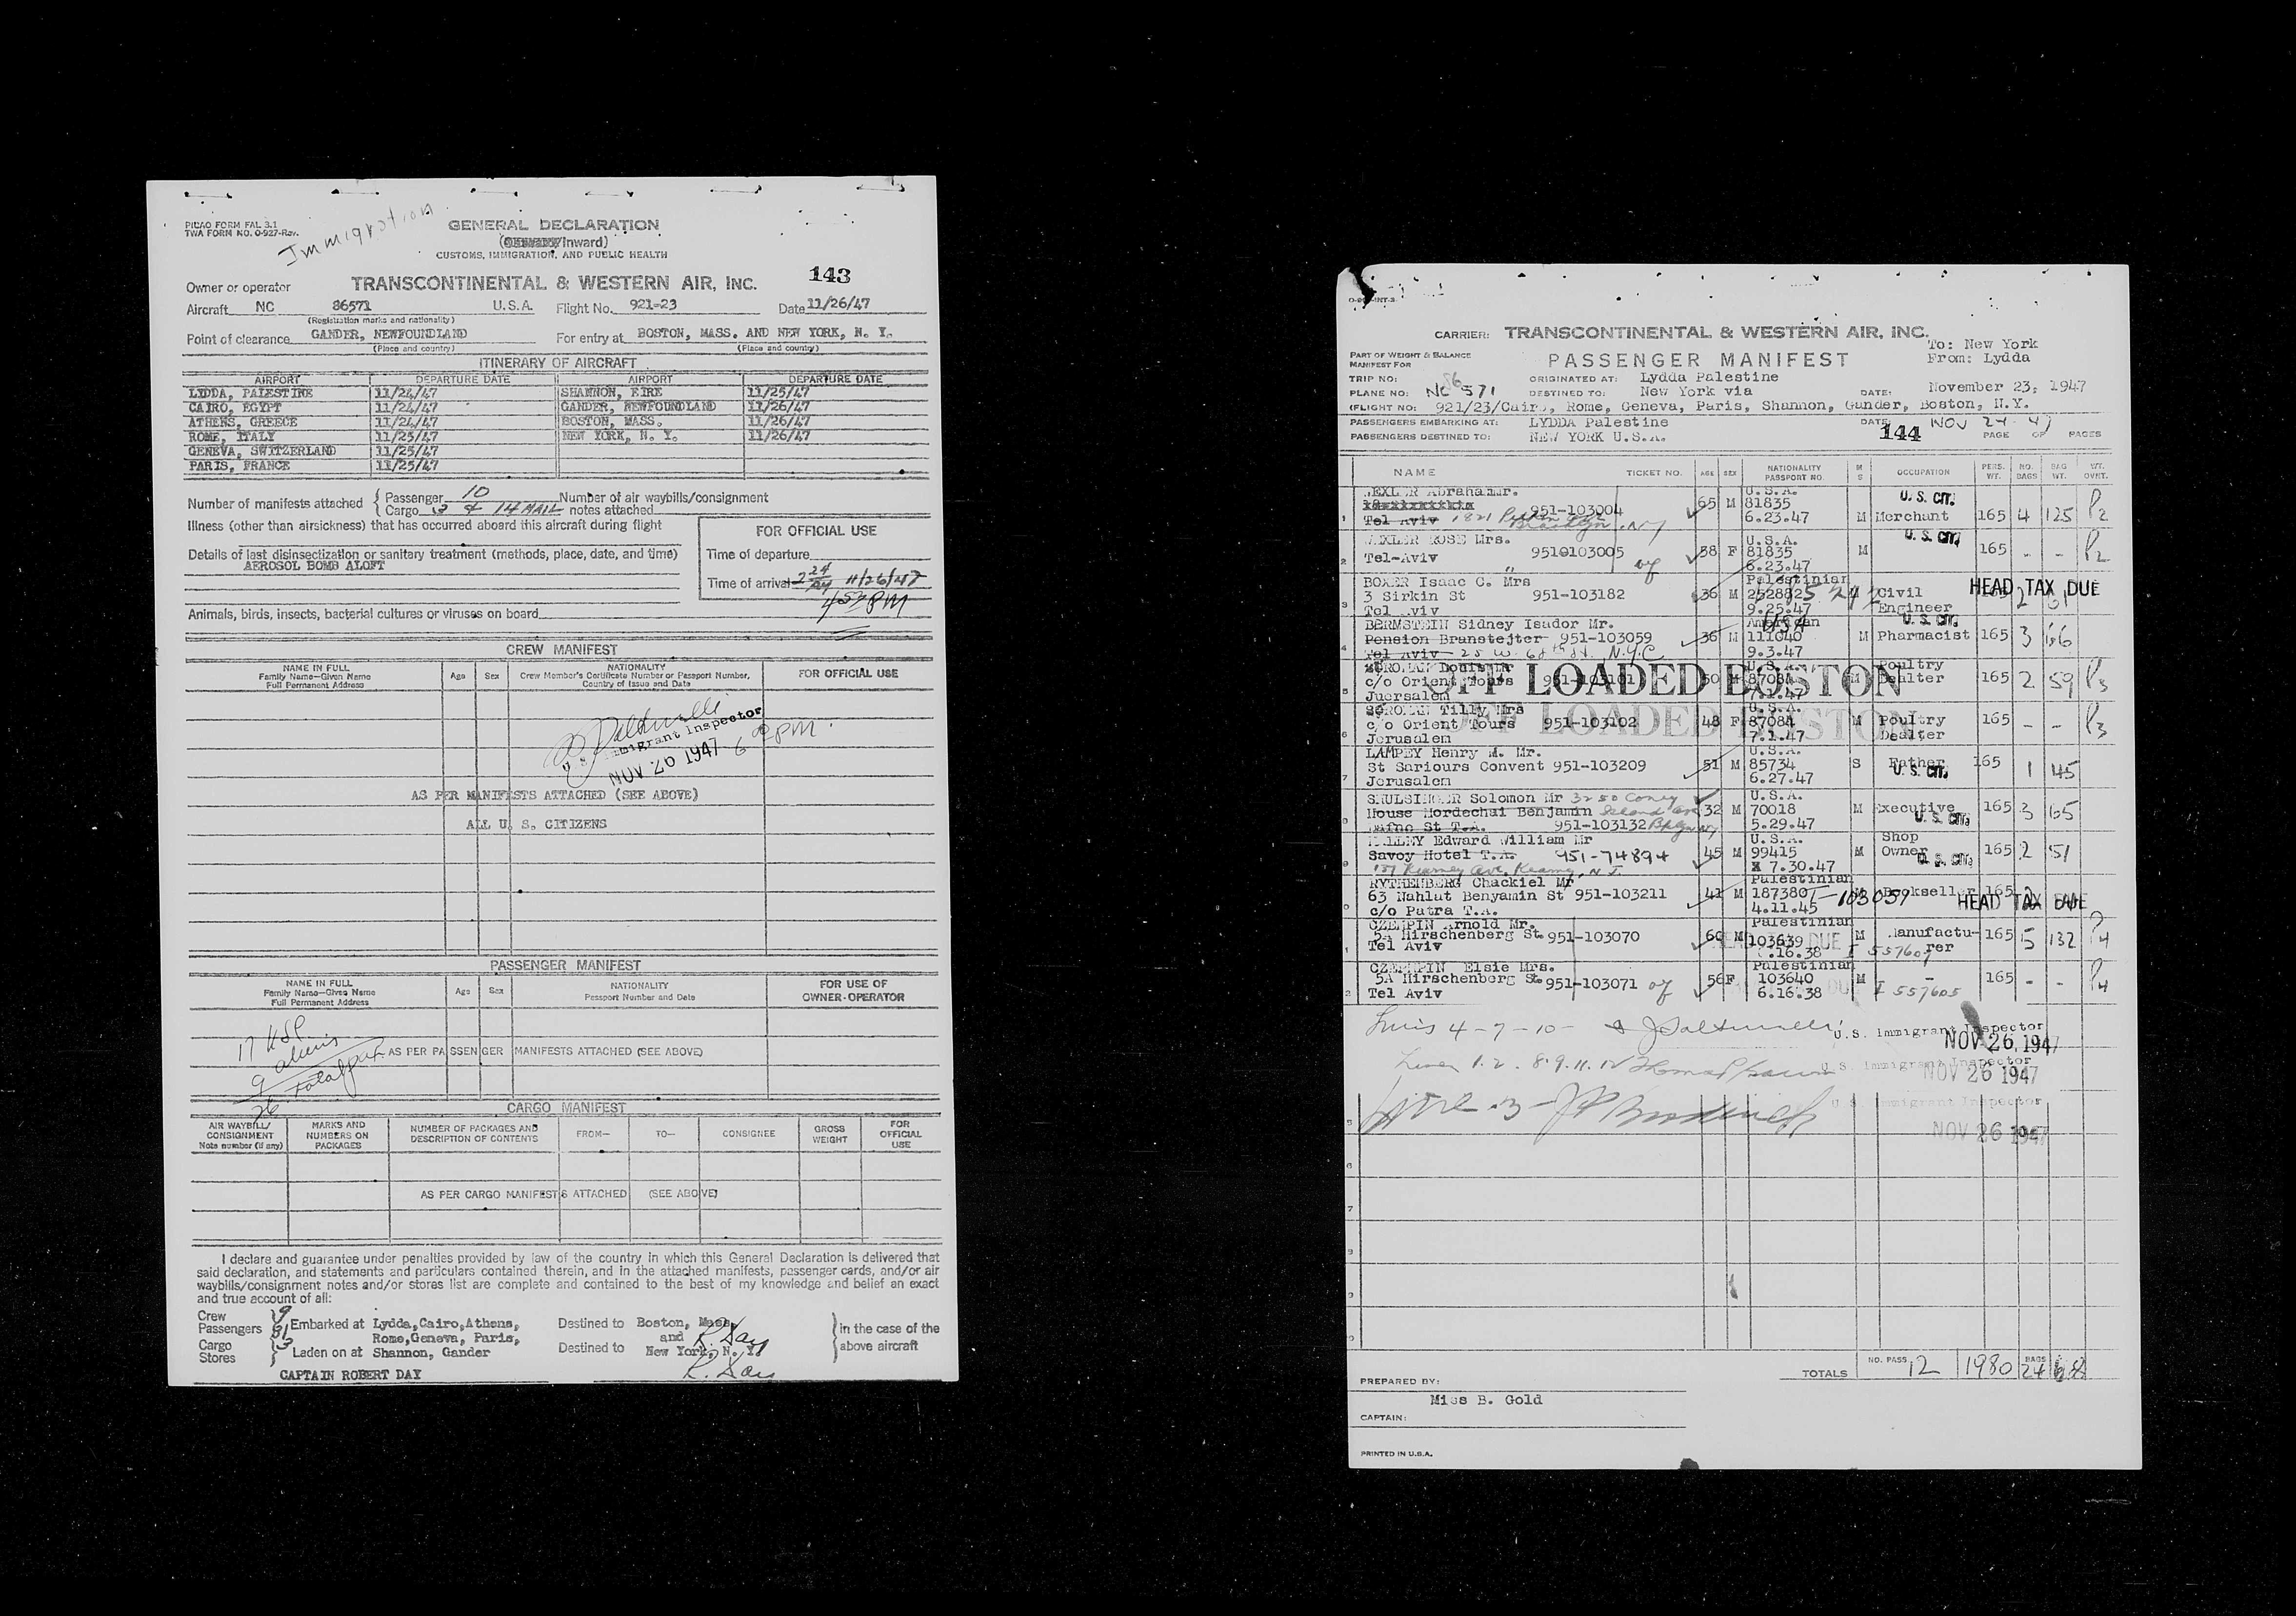 PICAO FORM FAL 3.1
TWA FORM NO. O-927-Rev.
Immigration
GENERAL DECLARATION
Inward)
CUSTOMS, IMMIGRATION, AND PUBLIC HEALTH
143
Owner or operator TRANSCONTINENTAL & WESTERN AIR, INC.
Aircraft NC 86571 U.S.A. Flight No. 921-23 Date 11/26/47
(Registration marks and nationality)
Point of clearance GANDER, NEWFOUNDLAND For entry at BOSTON, MASS. AND NEW YORK, N. Y.
(Place and country) (Place and country)
ITINERARY OF AIRCRAFT
AIRPORT DEPARTURE DATE AIRPORT DEPARTURE DATE
LYDDA, PALESTINE 11/24/47 SHANNON, EIRE 11/25/47
CAIRO, EGYPT 11/24/47 GANDER, NEWFOUNDLAND 11/26/47
ATHENS, GREECE 11/24/47 BOSTON, MASS. 11/26/47
ROME, ITALY 11/25/47 NEW YORK, N. Y. 11/26/47
GENEVA, SWITZERLAND 11/25/47
PARIS, FRANCE 11/25/47
Number of manifests attached { Passenger 10 Number of air waybills/consignment
Cargo & 14 MAIL notes attached
Illness (other than airsickness) that has occurred aboard this aircraft during flight
FOR OFFICIAL USE
Details of last disinsectization or sanitary treatment (methods, place, date, and time)
AEROSOL BOMB ALOFT
Time of departure
Time of arrival 224 PM 11/26/47
453 PM
Animals, birds, insects, bacterial cultures or viruses on board
CREW MANIFEST
NAME IN FULL
Family Name—Given Name
Full Permanent Address
Age Sex
NATIONALITY
Crew Member's Certificate Number or Passport Number,
Country of Issue and Date
FOR OFFICIAL USE
U. S. Immigrant Inspector
NOV 26 1947 6 PM.
AS PER MANIFESTS ATTACHED (SEE ABOVE)
ALL U. S. CITIZENS
PASSENGER MANIFEST
NAME IN FULL
Family Name—Given Name
Full Permanent Address
Age Sex
NATIONALITY
Passport Number and Date
FOR USE OF
OWNER-OPERATOR
17 USC
9 aliens
26 total
AS PER PASSENGER MANIFESTS ATTACHED (SEE ABOVE)
CARGO MANIFEST
AIR WAYBILL/
CONSIGNMENT
Note number (if any)
MARKS AND
NUMBERS ON
PACKAGES
NUMBER OF PACKAGES AND
DESCRIPTION OF CONTENTS
FROM— TO— CONSIGNEE
GROSS
WEIGHT
FOR
OFFICIAL
USE
AS PER CARGO MANIFESTS ATTACHED (SEE ABOVE)
I declare and guarantee under penalties provided by law of the country in which this General Declaration is delivered that
said declaration, and statements and particulars contained therein, and in the attached manifests, passenger cards, and/or air
waybills/consignment notes and/or stores list are complete and contained to the best of my knowledge and belief an exact
and true account of all:
Crew 9
Passengers 31
Cargo 3
Stores
Embarked at Lydda,Cairo,Athens,
Rome,Geneva, Paris,
Laden on at Shannon, Gander
Destined to Boston, Mass.
and
Destined to New York, N. Y.
in the case of the
above aircraft
R. Day
R. Day
CAPTAIN ROBERT DAY
CARRIER: TRANSCONTINENTAL & WESTERN AIR, INC.
To: New York
From: Lydda
PART OF WEIGHT & BALANCE
MANIFEST FOR
PASSENGER MANIFEST
TRIP NO: ORIGINATED AT: Lydda Palestine
PLANE NO: NC 86571 DESTINED TO: New York via DATE: November 23, 1947
(FLIGHT NO: 921/23/Cairo, Rome, Geneva, Paris, Shannon, Gander, Boston, N.Y.
PASSENGERS EMBARKING AT: LYDDA Palestine DATE: NOV 24 47
PASSENGERS DESTINED TO: NEW YORK U.S.A. 144 PAGE OF PAGES
NAME TICKET NO. AGE SEX NATIONALITY PASSPORT NO. M S OCCUPATION PERS. WT. NO. BAGS BAG WT. WT. OVRT.
WEXLER Abraham Mr. U.S.A. U.S. CIT.
951-103004 65 M 81835
1 Tel Aviv 1821 Pitkin Brooklyn, NY 6.23.47 M Merchant 165 4 125 P2
WEXLER ROSE Mrs. U.S.A. U.S. CIT.
Tel-Aviv 951-103005 58 F 81835 M 165 - - P2
2 6.23.47
BOXER Isaac C. Mrs Palestinian
3 Sirkin St 951-103182 36 M 252882 Civil HEAD TAX DUE
3 Tel Aviv 9.25.47 Engineer
BERMSTEIN Sidney Isador Mr. American USA U.S. CIT.
Pension Branstejter 951-103059 36 M 111040 M Pharmacist 165 3
4 Tel Aviv 25 W. 68th St. N.Y.C 9.3.47
Louis Mr U.S.A. Poultry
c/o Orient Tours 951-103101 50 M 87084 M Dealter 165 2 59 P3
5 Juersalem 7.1.47
OFF LOADED BOSTON
Tilly Mrs U.S.A.
c/o Orient Tours 951-103102 48 F 87084 M Poultry 165 - - P3
6 Jerusalem 7.1.47 Dealter
OFF LOADED BOSTON
LAMPEY Henry M. Mr. U.S.A.
St Sariours Convent 951-103209 51 M 85734 S Father 165 1 45
7 Jerusalem 6.27.47 U.S. CIT.
SHULSINGER Solomon Mr 3250 Coney U.S.A.
House Mordechai Benjamin Island Ave 32 M 70018 M Executive 165 3 65
8 St T.A. 951-103132 Bklyn NY 5.29.47 U.S. CIT.
Edward William Mr U.S.A. Shop
Savoy Hotel T.A. 951-74894 45 M 99415 M Owner 165 2 51
9 157 Kearney Ave. Kearny, N.J. 7.30.47 U.S. CIT.
RYTHENBERG Chackiel Mr Palestinian
63 Nahlat Benyamin St 951-103211 41 M 187380 I-103059 M Bookseller 165
0 c/o Patra T.A. 4.11.45 HEAD TAX DUE
CZEMPIN Arnold Mr. Palestinian
5A Hirschenberg St. 951-103070 60 M 103639 M Manufactu- 165 5 132 P4
1 Tel Aviv .16.38 I 557604 rer
CZEMPIN Elsie Mrs. Palestinian
5A Hirschenberg St. 951-103071 56 F 103640 M - 165 - - P4
2 Tel Aviv 6.16.38 I 557605
Lines 4-7-10- U.S. Immigrant Inspector
NOV 26, 1947
Lines 1.2. 8.9.11.12 U.S. Immigrant Inspector
NOV 26 1947
Line 3- U.S. Immigrant Inspector
NOV 26 1947
TOTALS NO. PASS 12 1980 BAGS 24
PREPARED BY:
Miss B. Gold
CAPTAIN:
PRINTED IN U.S.A.